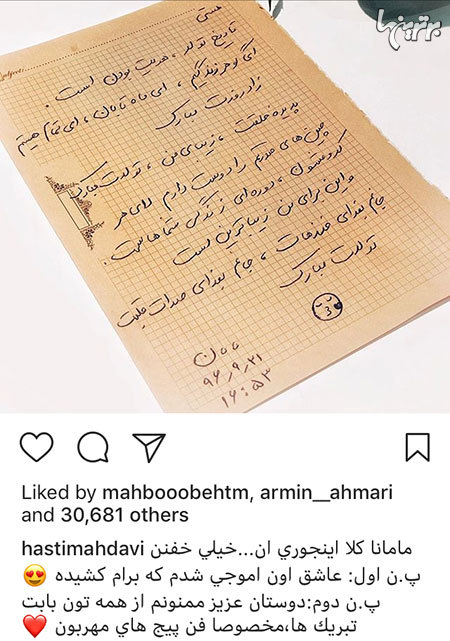 برترینها
هستی
تاریخ تولد ، هویت بودن است .
ای گوهر زندگیم ، ای ماه تابان ، ای تمام هستیم
زادروزت مبارک
پدیده خلقت ، زیبای من ، تولدت مبارک
چین های صورتم را دوست دارم لای هر
کدومشون ، دوره ای از زندگی شماهاست .
و این برای من زیباترین است
جانم بفدای خنده هات ، جانم بفدای صدات قلبمت
تولدت مبارک
مامان
۹۶٫۹٫۲۱
۱۶:۵۳
Liked by mahbooobehtm, armin__ahmari
and 30,681 others
hastimahdavi مامانا كلا اينجوري ان...خيلي خفنن
پ.ن اول: عاشق اون اموجي شدم كه برام كشيده 😍
پ.ن دوم:دوستان عزيز ممنونم از همه تون بابت
تبريك ها،مخصوصا فن پيج هاي مهربون ❤️